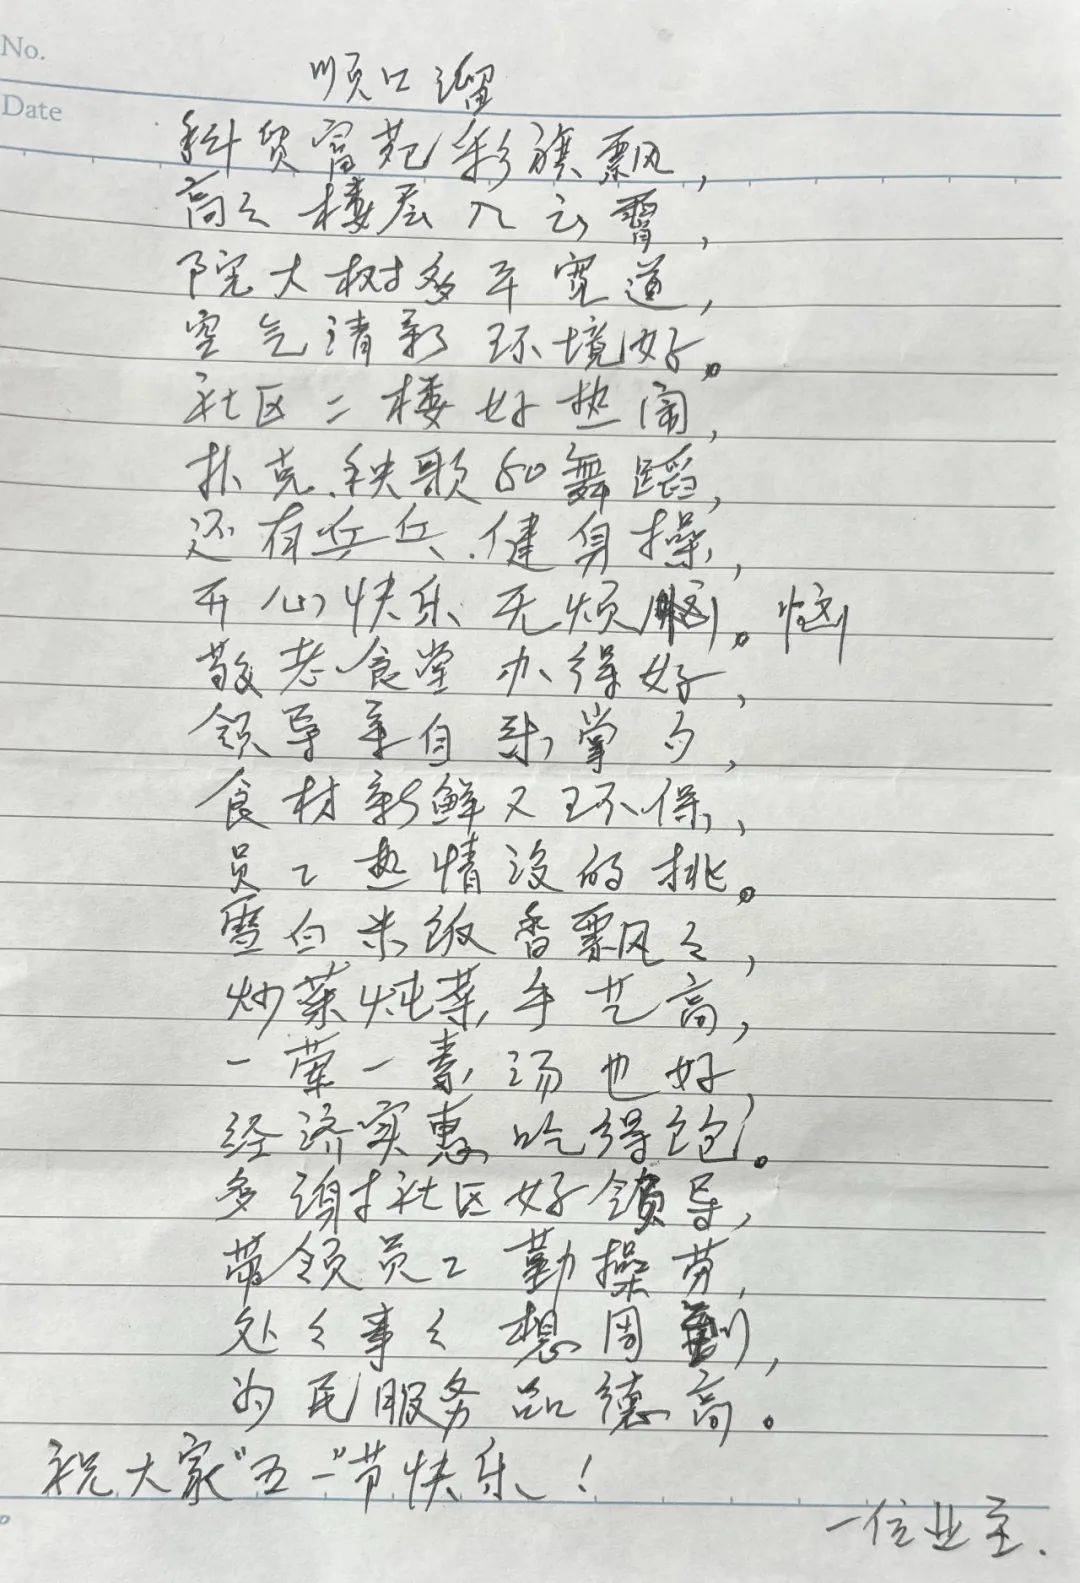 No.
Date
顺口溜
科贸富苑彩旗飘,
高々楼层入云霄,
院大树多平宽道,
空气清新环境好。
社区二楼好热闹,
扑克、秧歌和舞蹈,
还有乒乓、健身操,
开心快乐无烦恼。恼
敬老食堂办得好,
领导亲自来掌勺,
食材新鲜又环保,
员工热情没的挑。
雪白米饭香飘々,
炒菜炖菜手艺高,
一荤一素汤也好,
经济实惠吃得饱。
多谢社区好领导,
带领员工勤操劳,
处々事々想周到,
为民服务品德高。
祝大家"五一"节快乐!
一位业主.